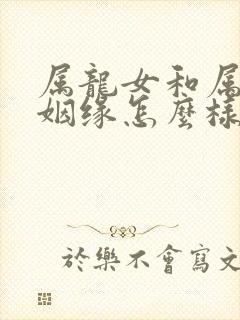 属龍女和属
姻缘怎麼樣
於樂不會寫文